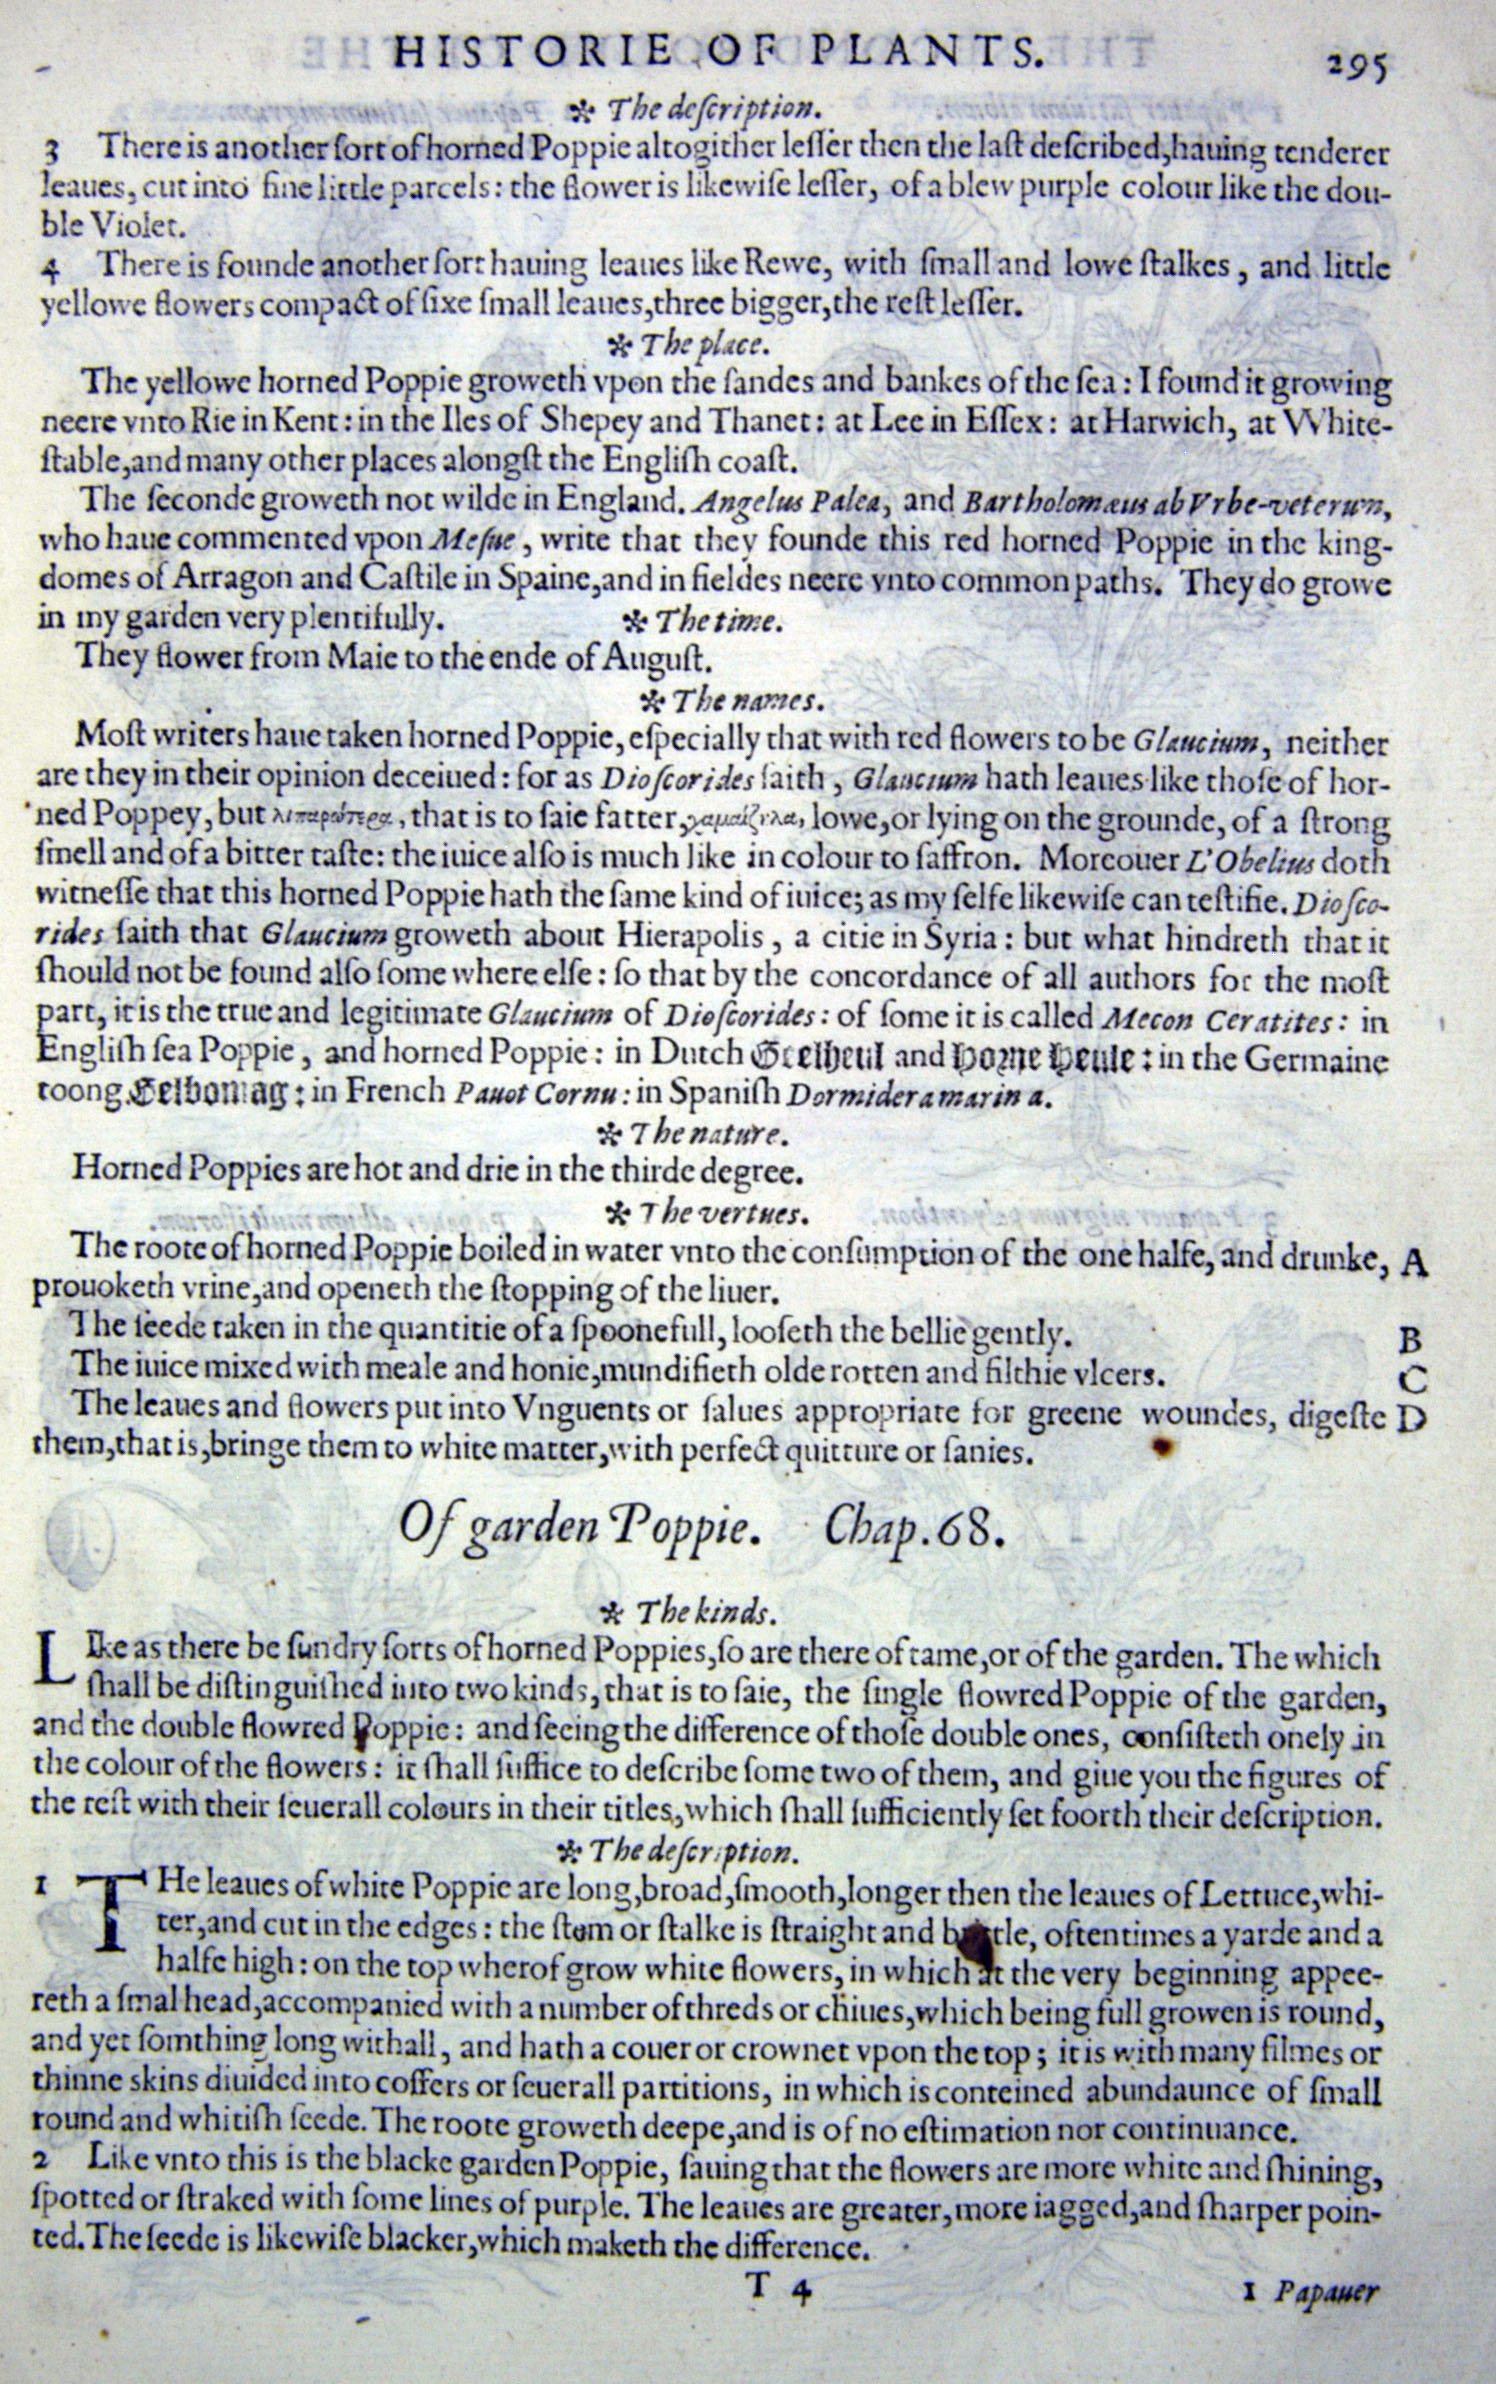 HISTORIE OF PLANTS. 295
✲ The deſcription.
3 There is another ſort of horned Poppie altogither leſſer then the laſt deſcribed, hauing tenderer
leaues, cut into fine little parcels: the flower is likewiſe leſſer, of a blew purple colour like the dou-
ble Violet.
4 There is founde another ſort hauing leaues like Rewe, with ſmall and lowe ſtalkes, and little
yellowe flowers compact of ſixe ſmall leaues, three bigger, the reſt leſſer.
✲ The place.
The yellowe horned Poppie groweth vpon the ſandes and bankes of the ſea: I found it growing
neere vnto Rie in Kent: in the Iles of Shepey and Thanet: at Lee in Eſſex: at Harwich, at White-
ſtable, and many other places alongſt the Engliſh coaſt.
The ſeconde groweth not wilde in England. Angelus Palea, and Bartholomæus ab Vrbe-veterum,
who haue commented vpon Meſue, write that they founde this red horned Poppie in the king-
domes of Arragon and Caſtile in Spaine, and in fieldes neere vnto common paths. They do growe
in my garden very plentifully. ✲ The time.
They flower from Maie to the ende of Auguſt.
✲ The names.
Moſt writers haue taken horned Poppie, eſpecially that with red flowers to be Glaucium, neither
are they in their opinion deceiued: for as Dioſcorides ſaith, Glaucium hath leaues like thoſe of hor-
ned Poppey, but λιπαρώτερα, that is to ſaie fatter, χαμαίζηλα, lowe, or lying on the grounde, of a ſtrong
ſmell and of a bitter taſte: the iuice alſo is much like in colour to ſaffron. Moreouer L'Obelius doth
witneſſe that this horned Poppie hath the ſame kind of iuice; as my ſelfe likewiſe can teſtifie. Dioſco-
rides ſaith that Glaucium groweth about Hierapolis, a citie in Syria: but what hindreth that it
ſhould not be found alſo ſome where elſe: ſo that by the concordance of all authors for the moſt
part, it is the true and legitimate Glaucium of Dioſcorides: of ſome it is called Mecon Ceratites: in
Engliſh ſea Poppie, and horned Poppie: in Dutch Geelheul and Horne Heule: in the Germaine
toong Gelbomag: in French Pauot Cornu: in Spaniſh Dormidera marina.
✲ The nature.
Horned Poppies are hot and drie in the thirde degree.
✲ The vertues.
The roote of horned Poppie boiled in water vnto the conſumption of the one halfe, and drunke, A
prouoketh vrine, and openeth the ſtopping of the liuer.
The ſeede taken in the quantitie of a ſpoonefull, looſeth the bellie gently. B
The iuice mixed with meale and honie, mundifieth olde rotten and filthie vlcers. C
The leaues and flowers put into Vnguents or ſalues appropriate for greene woundes, digeſte D
them, that is, bringe them to white matter, with perfect quitture or ſanies.
Of garden Poppie. Chap. 68.
✲ The kinds.
LIke as there be ſundry ſorts of horned Poppies, ſo are there of tame, or of the garden. The which
ſhall be diſtinguiſhed into two kinds, that is to ſaie, the ſingle flowred Poppie of the garden,
and the double flowred Poppie: and ſeeing the difference of thoſe double ones, conſiſteth onely in
the colour of the flowers: it ſhall ſuffice to deſcribe ſome two of them, and giue you the figures of
the reſt with their ſeuerall colours in their titles, which ſhall ſufficiently ſet foorth their deſcription.
✲ The deſcription.
1 THe leaues of white Poppie are long, broad, ſmooth, longer then the leaues of Lettuce, whi-
ter, and cut in the edges: the ſtem or ſtalke is ſtraight and brittle, oftentimes a yarde and a
halfe high: on the top wherof grow white flowers, in which at the very beginning appee-
reth a ſmal head, accompanied with a number of threds or chiues, which being full growen is round,
and yet ſomthing long withall, and hath a couer or crownet vpon the top; it is with many filmes or
thinne skins diuided into coffers or ſeuerall partitions, in which is conteined abundaunce of ſmall
round and whitiſh ſeede. The roote groweth deepe, and is of no eſtimation nor continuance.
2 Like vnto this is the blacke garden Poppie, ſauing that the flowers are more white and ſhining,
ſpotted or ſtraked with ſome lines of purple. The leaues are greater, more iagged, and ſharper poin-
ted. The ſeede is likewiſe blacker, which maketh the difference.
T 4 1 Papauer